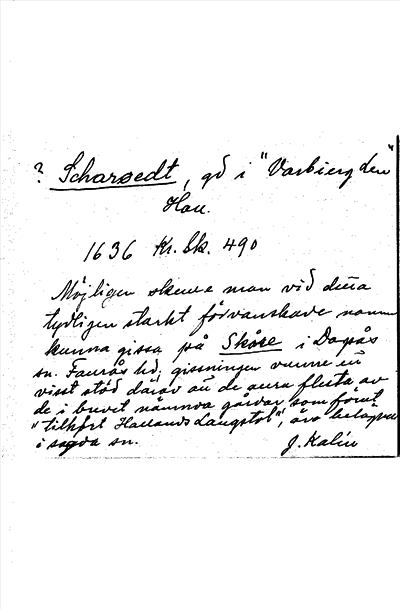 ? Scharsedt, gd i "Varbierg den"
Hall.
1636 Kr. Sk. 490
Möjligen skulle man vid detta
tydligen starkt förvanskade namn
kunna gissa på Skåre i Dagsås
sn. Faurås hd; gissningen vunne ett
visst stöd därav att de aura flesta av
de i brevet nämnda gårdar, som förut
"tilhört Hallands Laugstol", äro belägna
i sagda sn.
J. Kalén